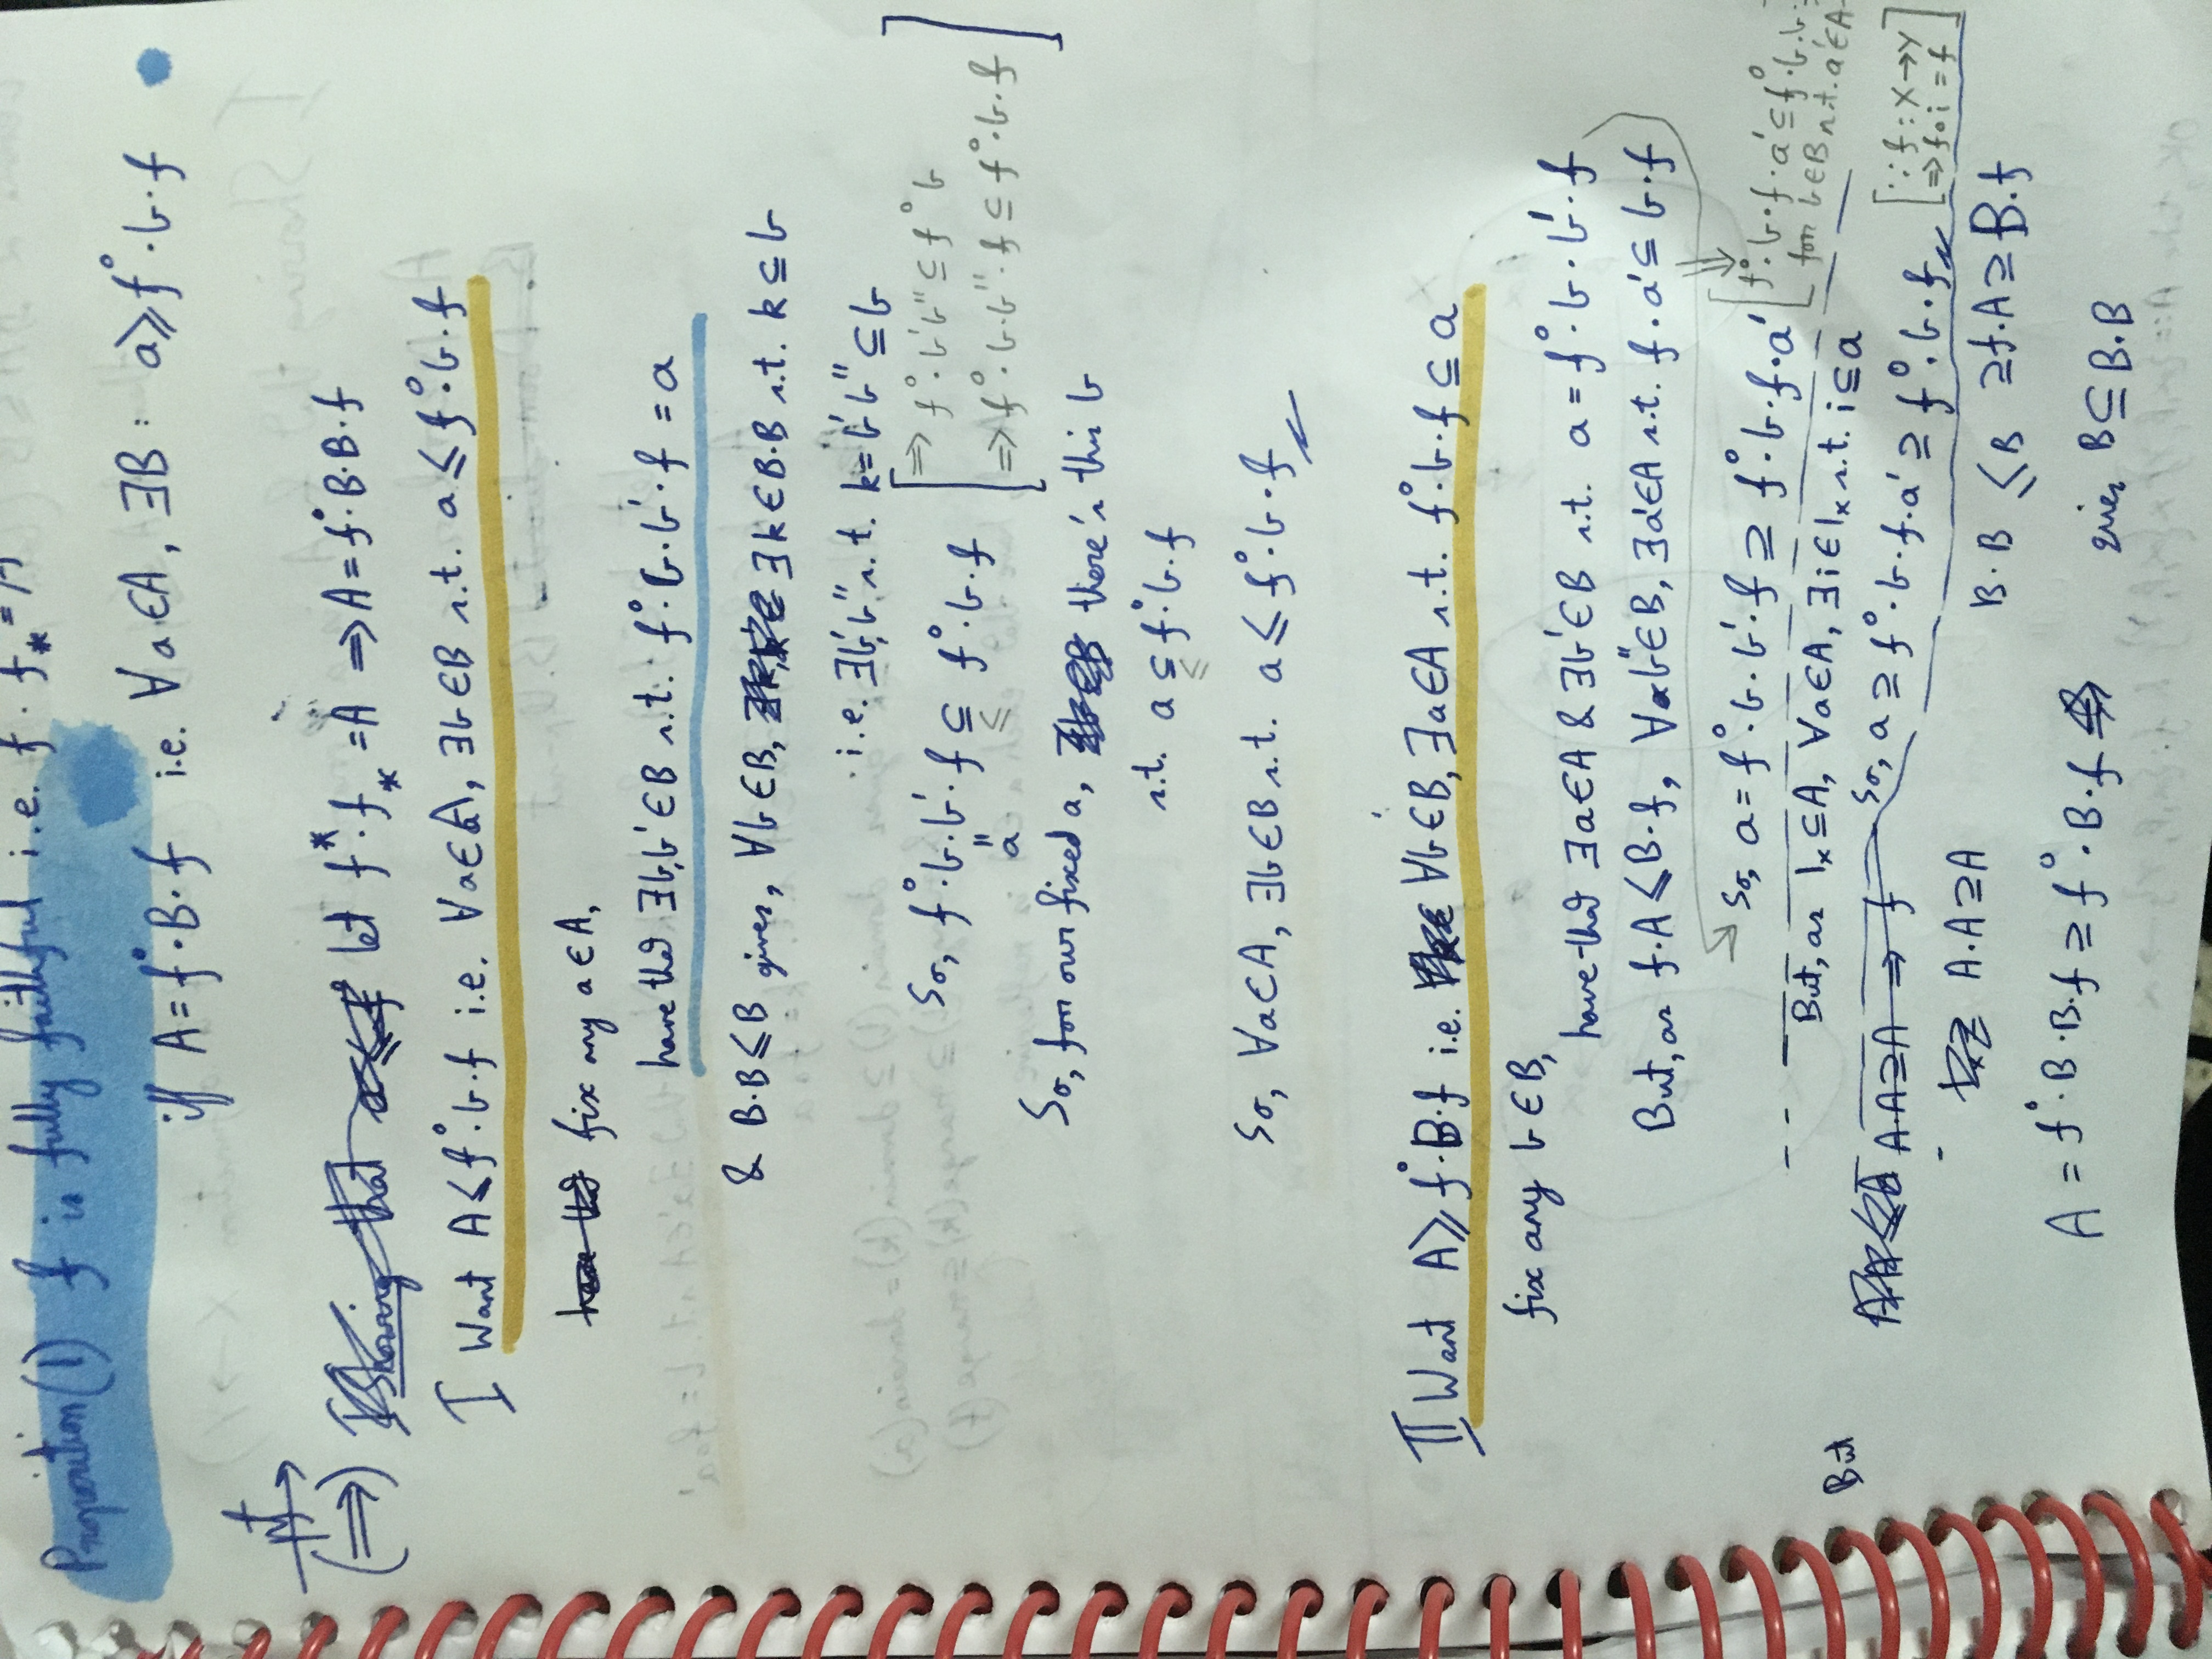 Proposition (1) f is fully faithful i.e. f* · f_* = A
iff A = f° · B · f i.e. ∀a∈A, ∃B : a ⩾ f° · b · f
pf
(⟹) I Showing that a ⩽ f° let f* · f_* = A ⟹ A = f° · B · B · f
I Want A ⩽ f° · b · f i.e. ∀a∈A, ∃b∈B s.t. a ⩽ f° · b · f
have that fix any a∈A,
have that ∃b,b'∈B s.t. f° · b · b' · f = a
& B·B ⩽ B gives, ∀b∈B, ∃k∈B·B s.t. k ⊆ b
i.e. ∃b',b'' s.t. k = b'b'' ⊆ b
So, f° · b · b' · f ⊆ f° · b · f
[⟹ f° · b'b'' ⊆ f° b
" ⩽
a
⟹ f° · b · b'' · f ⊆ f° · b · f]
So, for our fixed a, there's this b
s.t. a ⊆ f° · b · f
⩽
So, ∀a∈A, ∃b∈B s.t. a ⩽ f° · b · f
II Want A ⩾ f° · B · f i.e. ∀b∈B, ∃a∈A s.t. f° · b · f ⊆ a
fix any b∈B,
have that ∃a∈A & ∃b'∈B s.t. a = f° · b · b' · f
But, as f·A ⩽ B·f, ∀b''∈B, ∃a'∈A s.t. f · a' ⊆ b · f
So, a = f° · b · b' · f ⊇ f° · b · f · a'
[f° · b · f · a' ⊆ f° · b · b ·
for b∈B s.t. a'∈A
But, as 1ₓ ⊆ A, ∀a∈A, ∃i∈1ₓ s.t. i ⊆ a
But
A·A ⊇ A ⟹ f So, a ⊇ f° · b · f · a' ⊇ f° · b · f
[∵ f : X→Y
⟹ f∘i = f]
A·A ⊇ A
B·B ⩽ B ⊇ f·A ⊇ B·f
A = f° · B · B · f ⊇ f° · B · f ⟹
gives B ⊆ B·B